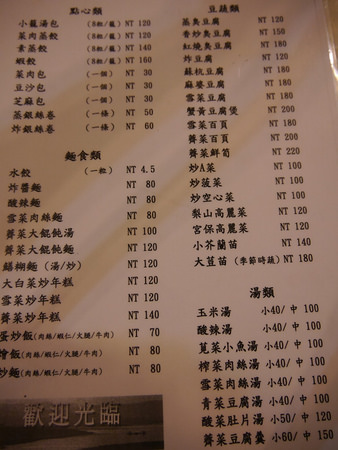 點心類
小籠湯包 (8粒/籠) NT 120
菜肉蒸餃 (8粒/籠) NT 120
素蒸餃 (8粒/籠) NT 140
蝦餃 (8粒/籠) NT 160
菜肉包 (一個) NT 30
豆沙包 (一個) NT 30
芝麻包 (一個) NT 30
蒸銀絲卷 (一條) NT 50
炸銀絲卷 (一條) NT 60
麵食類
水餃 (一粒) NT 4.5
炸醬麵 NT 80
酸辣麵 NT 80
雪菜肉絲麵 NT 80
薺菜大餛飩湯 NT 100
薺菜大餛飩麵 NT 120
鱔糊麵 (湯/炒) NT 120
大白菜炒年糕 NT 120
雪菜炒年糕 NT 120
薺菜炒年糕 NT 140
蛋炒飯(肉絲/蝦仁/火腿/牛肉) NT 70
燴飯(肉絲/蝦仁/火腿/牛肉) NT 80
炒麵(肉絲/蝦仁/火腿/牛肉) NT 80
歡迎光臨
豆蔬類
蒸臭豆腐 NT 180
香炒臭豆腐 NT 150
紅燒臭豆腐 NT 180
炸豆腐
麻婆豆腐 NT 180
雪菜豆腐 NT 180
蟹黃豆腐煲 NT 200
雪菜百頁 NT 180
薺菜百頁 NT 200
薺菜鮮筍 NT 220
炒A菜 NT 100
炒菠菜 NT 100
炒空心菜 NT 100
梨山高麗菜 NT 100
宮保高麗菜 NT 120
小芥蘭苗 NT 140
大荳苗 (季節時蔬) NT 180
湯類
玉米湯 小40/ 中 100
酸辣湯 小40/ 中 100
莧菜小魚湯 小40/ 中 100
榨菜肉絲湯 小40/ 中 100
雪菜肉絲湯 小40/ 中 100
青菜豆腐湯 小40/ 中 100
酸菜肚片湯 小50/ 中 120
薺菜豆腐羹 小60/ 中 150